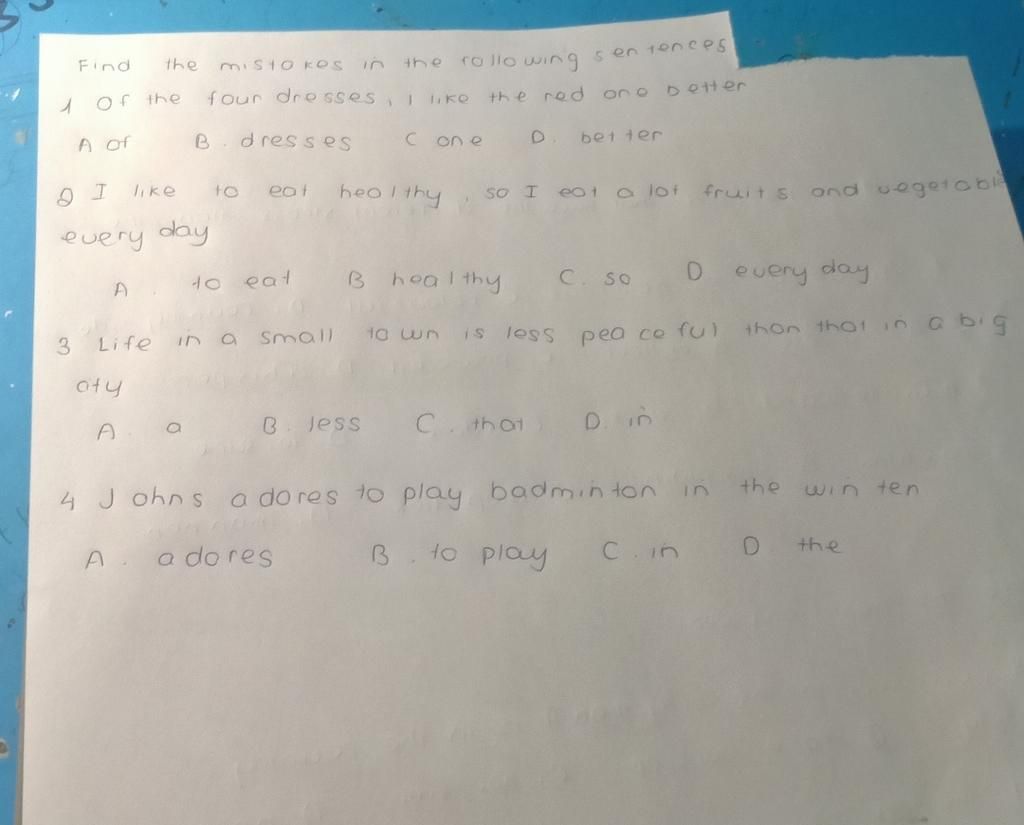 Find the mistakes in the following sentences
1 Of the four dresses, I like the red one better
A Of B. dresses C one D. better
2 I like to eat healthy, so I eat a lot fruits and vegetable
every day
A. to eat B healthy C. so D. every day
3 Life in a small town is less peaceful than that in a big
city
A. a B. less C. that D. in
4 Johns adores to play badminton in the winten
A. adores B. to play C. in D the